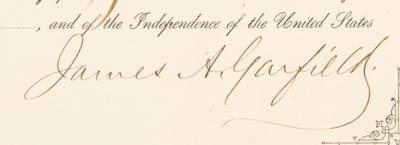 , and of the Independence of the United States
James A. Garfield.